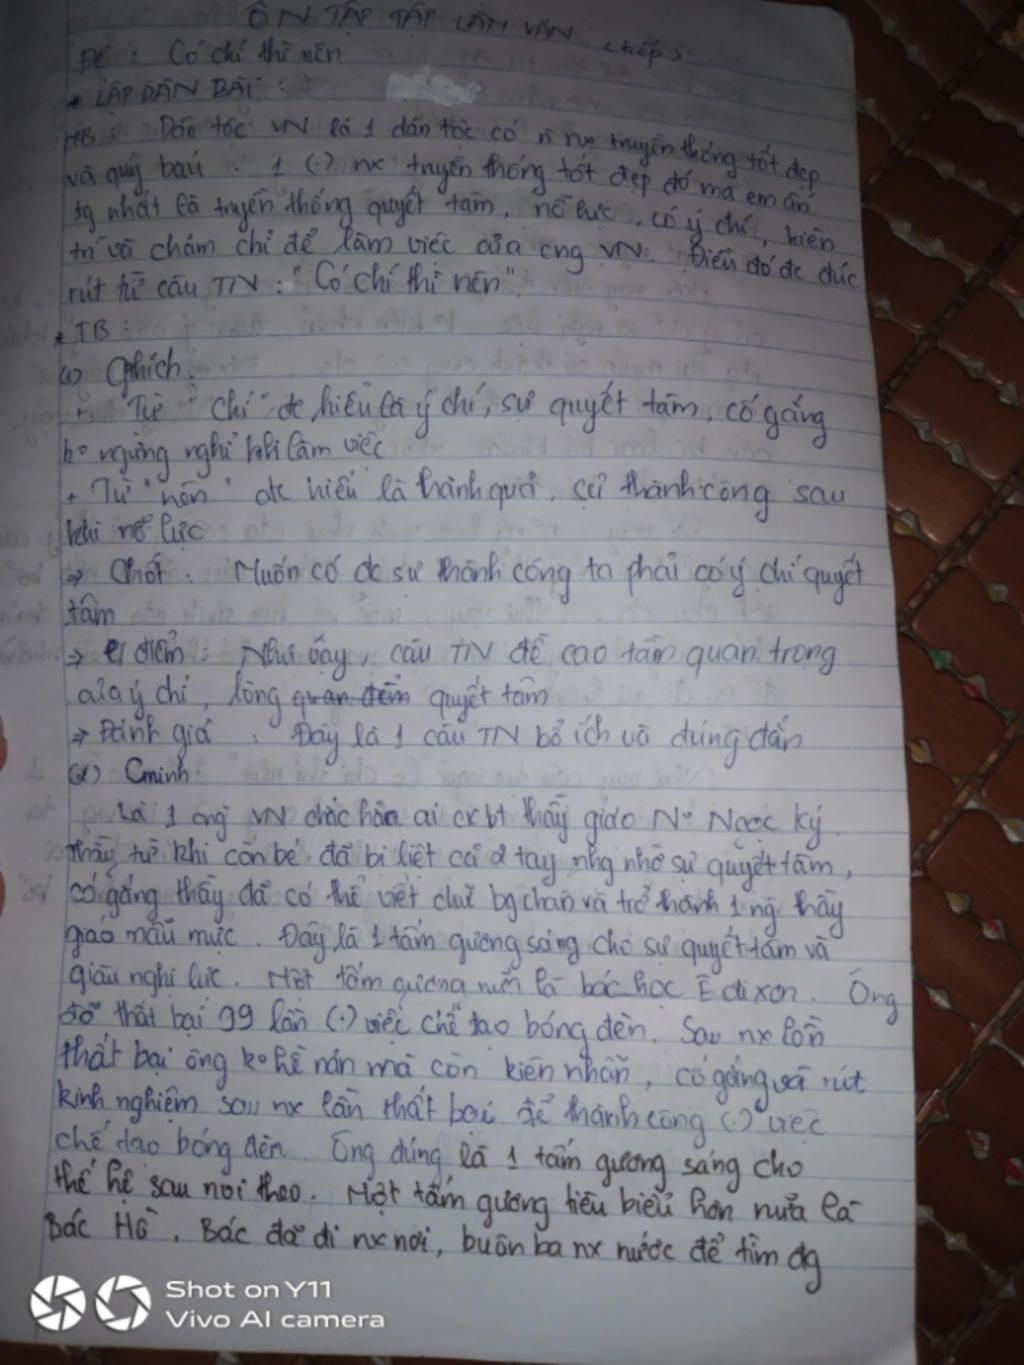 ÔN TẬP TẬP LÀM VĂN (tiếp)
Đề : Có chí thì nên
* LẬP DÀN BÀI :
MB : Dân tộc VN là 1 dân tộc có n nx truyền thống tốt đẹp
và quý báu . 1 (.) nx truyền thống tốt đẹp đó mà em ấn
tg nhất là truyền thống quyết tâm, nỗ lực, có ý chí, kiên
trì và chăm chỉ để làm việc của cng VN. Điều đó đc đúc
rút từ câu TN : "Có chí thì nên".
* TB
(1) Gthích
+ Từ "chí" đc hiểu là ý chí, sự quyết tâm, cố gắng
ko ngừng nghỉ khi làm việc
+ Từ "nên" đc hiểu là thành quả, sự thành công sau
khi nỗ lực
=> Chốt : Muốn có đc sự thành công ta phải có ý chí quyết
tâm
=> điểm : Như vậy, câu TN đề cao tầm quan trọng
của ý chí, lòng quan điểm quyết tâm
=> Đánh giá : Đây là 1 câu TN bổ ích và đúng đắn
(2) Cminh
Là 1 ng VN chắc hẳn ai cx bt thầy giáo Ng Ngọc Ký.
Thầy từ khi còn bé đã bị liệt cả 2 tay nhg nhờ sự quyết tâm,
cố gắng thầy đã có thể viết chữ bg chân và trở thành 1 ng thầy
giáo mẫu mực. Đây là 1 tấm gương sáng cho sự quyết tâm và
giàu nghị lực. Một tấm gương nữa là bác học Ê đi xơn. Ông
đã thất bại 99 lần (.) việc chế tạo bóng đèn. Sau nx lần
thất bại ông ko hề nản mà còn kiên nhẫn, cố gắng và rút
kinh nghiệm sau nx lần thất bại để thành công (.) việc
chế tạo bóng đèn. Ông đúng là 1 tấm gương sáng cho
thế hệ sau noi theo. Một tấm gương tiêu biểu hơn nữa là
Bác Hồ. Bác đã đi nx nơi, buôn ba nx nước để tìm đg
Shot on Y11
Vivo AI camera